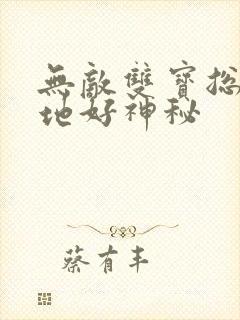 無敵雙寶總
地好神秘
蔡有丰